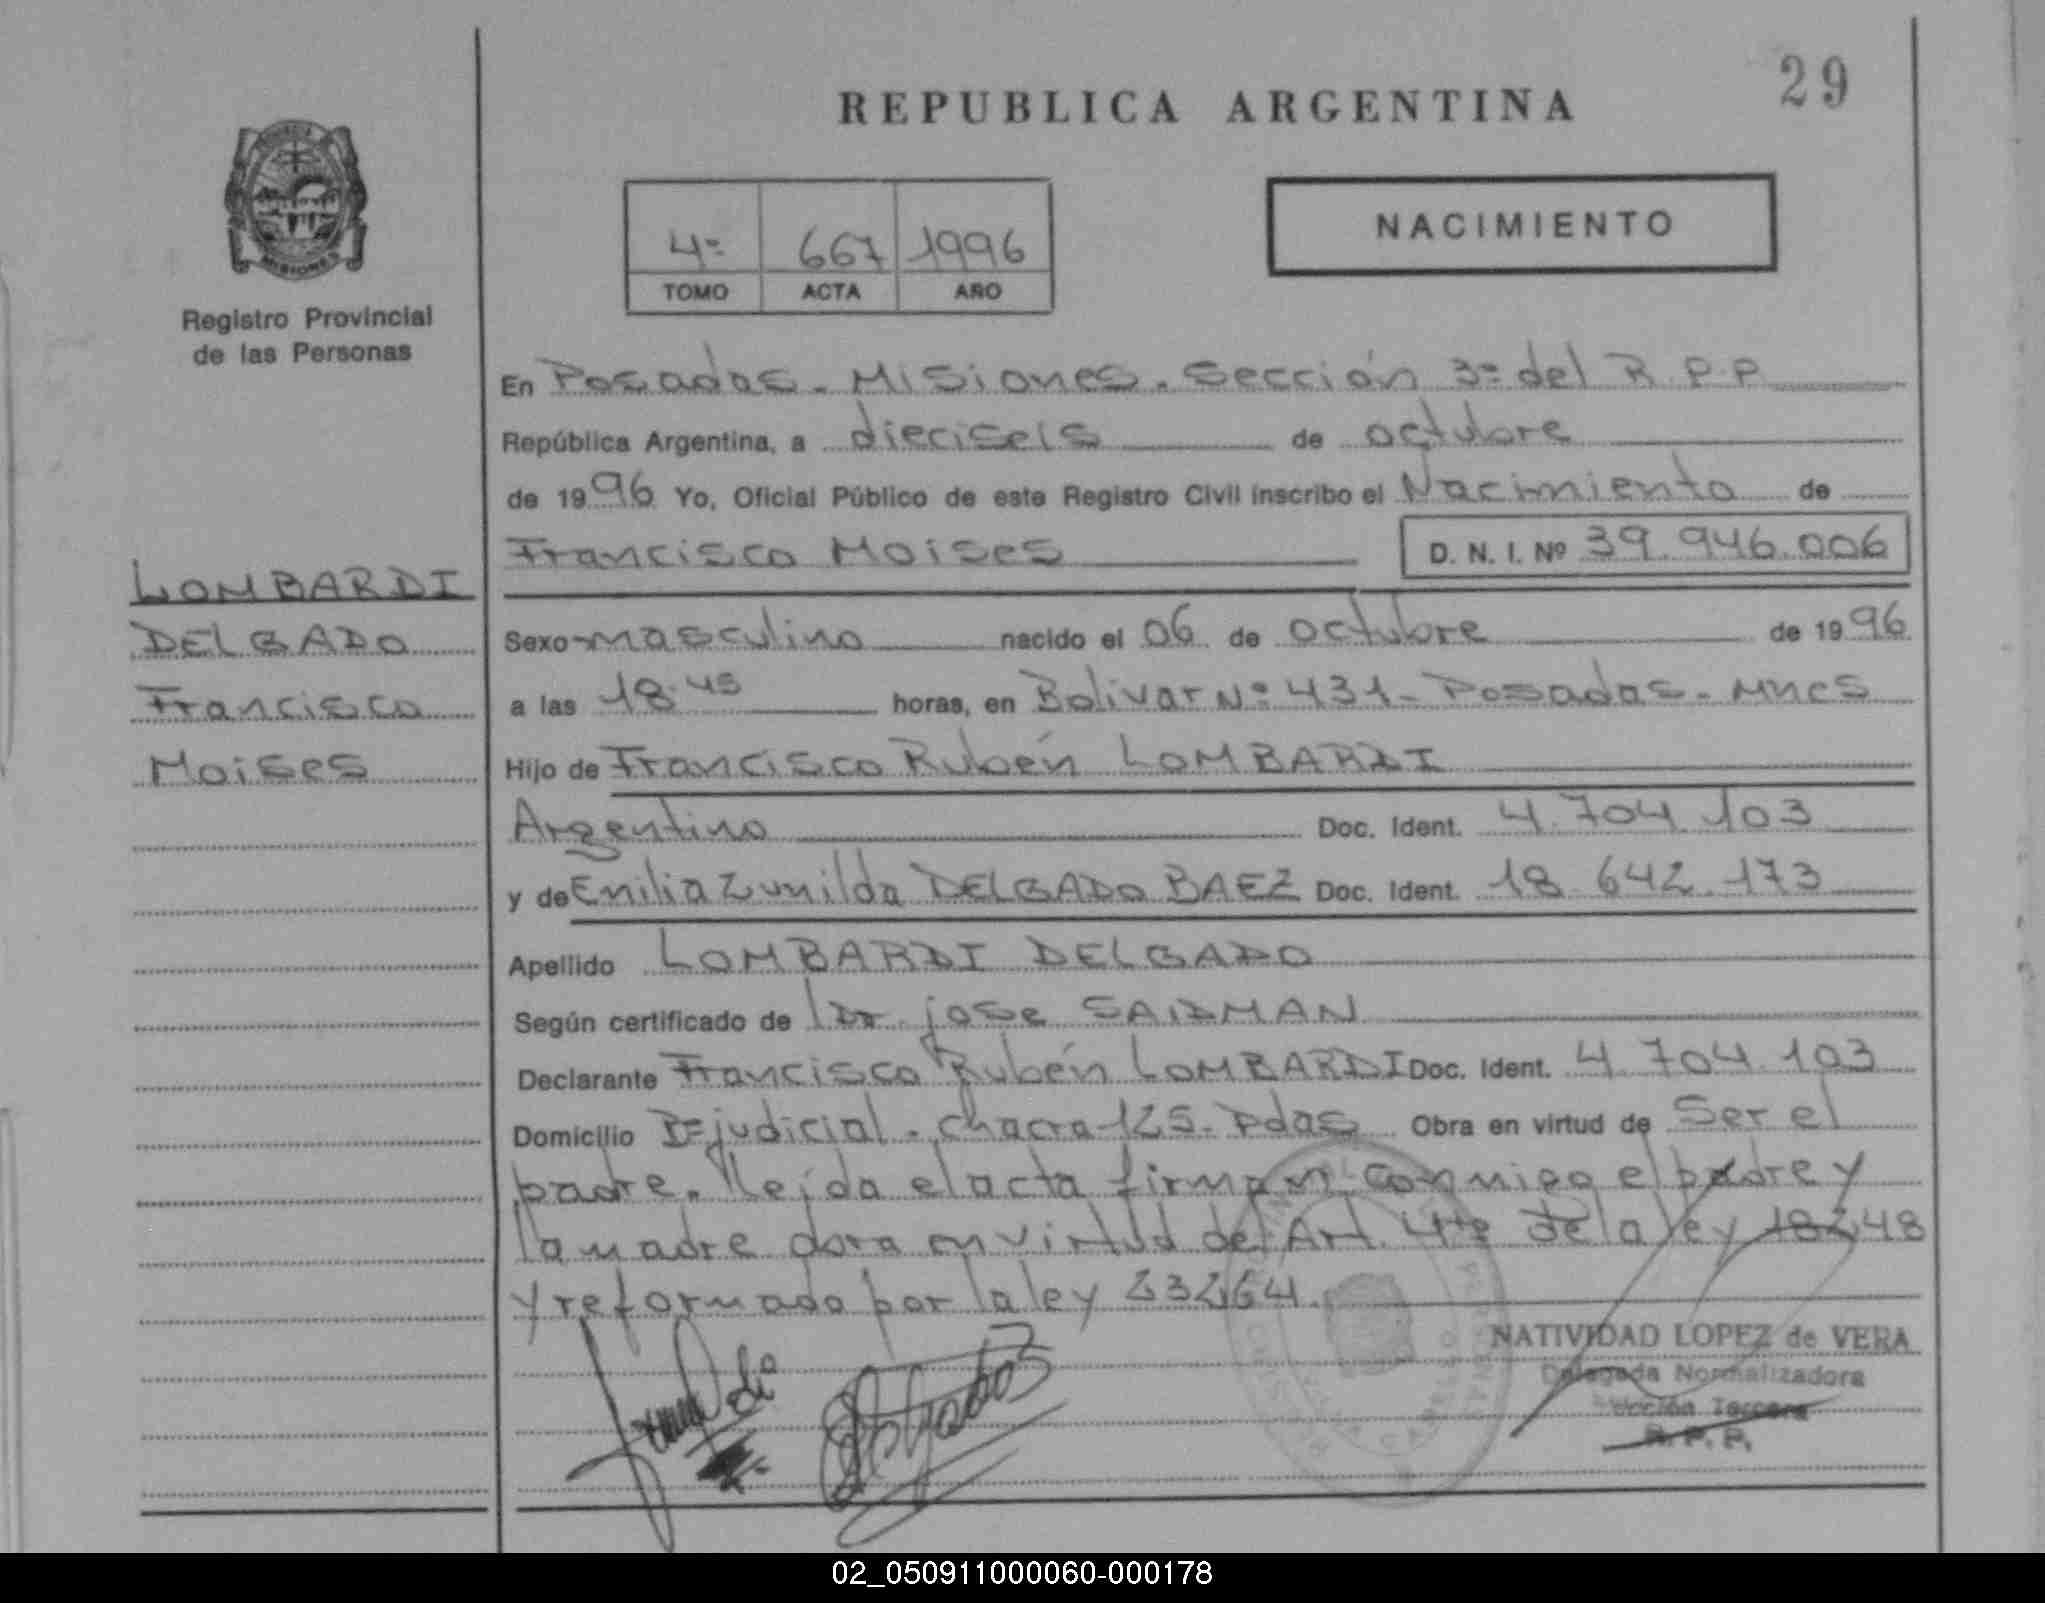 29
REPUBLICA ARGENTINA
MISIONES
Registro Provincial
de las Personas
4º 667 1996
TOMO ACTA AÑO
NACIMIENTO
En Posadas - Misiones - Sección 3º del R.P.P
República Argentina, a dieciseis de octubre
de 1996 Yo, Oficial Público de este Registro Civil inscribo el Nacimiento de
Francisco Moises D. N. I. Nº 39.946.006
LOMBARDI
DELGADO
Francisco
Moises
Sexo masculino nacido el 06 de octubre de 1996
a las 18:45 horas, en Bolivar Nº 431 - Posadas - Mnes
Hijo de Francisco Rubén LOMBARDI
Argentino Doc. Ident. 4.704.103
y de Emilia Zunilda DELGADO BAEZ Doc. Ident. 18.642.173
Apellido LOMBARDI DELGADO
Según certificado de Dr. jose SAIDMAN
Declarante Francisco Rubén LOMBARDI Doc. Ident. 4.704.103
Domicilio Bº judicial - chacra 125 - Pdas Obra en virtud de Ser el
padre. lleída el acta firman conmigo el padre y
la madre obra en virtud del Art. 4º de la ley 18248
y reformado por la ley 23264.
NATIVIDAD LOPEZ de VERA
Delegada Normalizadora
Sección Tercera
R. P. P.
02_050911000060-000178